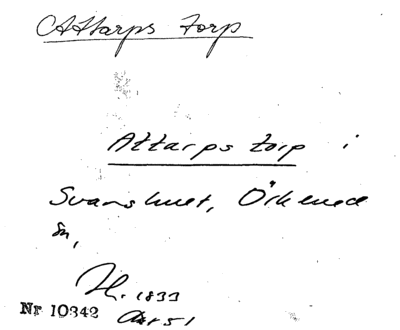 Attarps torp
Attarps torp i
Svanshult, Örkened
sn,
H. 1833
Nr 10342